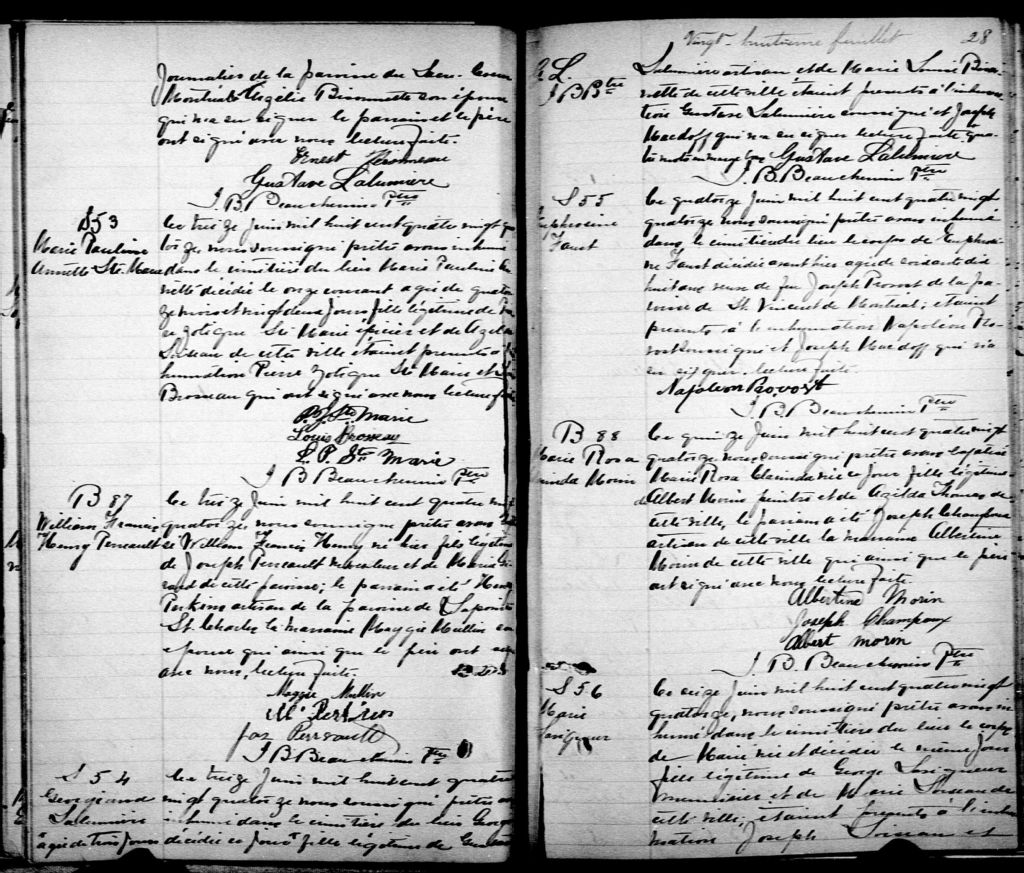 Journalier de la paroisse du Sacré-Coeur
Montréal & Azélie Bissonnette son épouse
qui n'a su signer le parrain et le père
ont signé avec nous lecture faite.
Ernest
Gustave Lalumière
J B Beauchemin Ptre
S 53
Marie Pauline
Annette Ste Marie
Le treize Juin mil huit cent quatre vingt qua
torze nous soussigné prêtre avons inhumé
dans le cimetière du lieu Marie Pauline An
nette décédée le onze courant agée de quator
ze mois et vingt deux Jours, fille légitime de Pier
re Zotique Ste Marie épicier et de
de cette ville étaient présents à l'in
humation Pierre Zotique Ste Marie et Louis
Brosseau qui ont signé avec nous lecture faite.
P. Z. Ste Marie
Louis Brosseau
L. P. Ste Marie
J B Beauchemin Ptre
B 87
William Francis
Henry Perreault
Le treize Juin mil huit cent quatre vingt
quatorze nous soussigné prêtre avons bapti
sé William Francis Henry né hier fils légitime
de Joseph Perreault mouleur et de Marie
de cette paroisse; le parrain a été Henry
Perkins artisan de la paroisse de La pointe
St. Charles la marraine Maggie Mullin son
épouse qui ainsi que le père ont signé
avec nous, lecture faite.
Maggie Mullin
Perkins
Jos Perreault
J B Beauchemin Ptre
S 54
Georgianne
Lalumière
agée de trois Jours
Le treize Juin mil huit cent quatre
vingt quatorze nous soussigné prêtre avons
inhumé dans le cimetière du lieu Georgi
décédée ce Jour fille légitime de Gustave
Vingt-huitième feuillet 28
G. L.
J B B Ptre
Lalumière artisan et de Marie Louise Bisson
nette de cette ville étaient présents à l'inhuma
tion Gustave Lalumière soussigné et Joseph
Macdoff qui n'a su signer lecture faite qua
tre mots en marge bons Gustave Lalumière
J. B. Beauchemin Ptre
S 55
Euphrosine
Faust
Le quatorze Juin mil huit cent quatre vingt
quatorze nous soussigné prêtre avons inhumé
dans le cimetière du lieu le corps de Euphrosi
ne Faust décédée avant hier agée de soixante dix
huit ans veuve de feu Joseph Provost de la pa
roisse de St. Vincent de Montréal; étaient
présents à l'inhumation Napoléon Pro
vost soussigné et Joseph Macdoff qui n'a
su signer. lecture faite.
Napoleon Provost
J. B. Beauchemin Ptre
B 88
Marie Rosa
Clarinda Morin
Le quinze Juin mil huit cent quatre vingt
quatorze nous soussigné prêtre avons baptisé
Marie Rosa Clarinda née ce Jour fille légitime
d'Albert Morin peintre et de Azilda Thomas de
cette ville, le parrain a été Joseph Champoux
artisan de cette ville la marraine Albertine
Morin de cette ville qui ainsi que le père
ont signé avec nous lecture faite
Albertine Morin
Joseph Champoux
Albert morin
J. B. Beauchemin Ptre
S 56
Marie
Lavigueur
Le seize Juin mil huit cent quatre vingt
quatorze, nous soussigné prêtre avons in
humé dans le cimetière du lieu le corps
de Marie née et décédée le même Jour
fille légitime de George Lavigueur
menuisier et de Marie de
cette ville, étaient présents à l'inhu
mation Joseph et